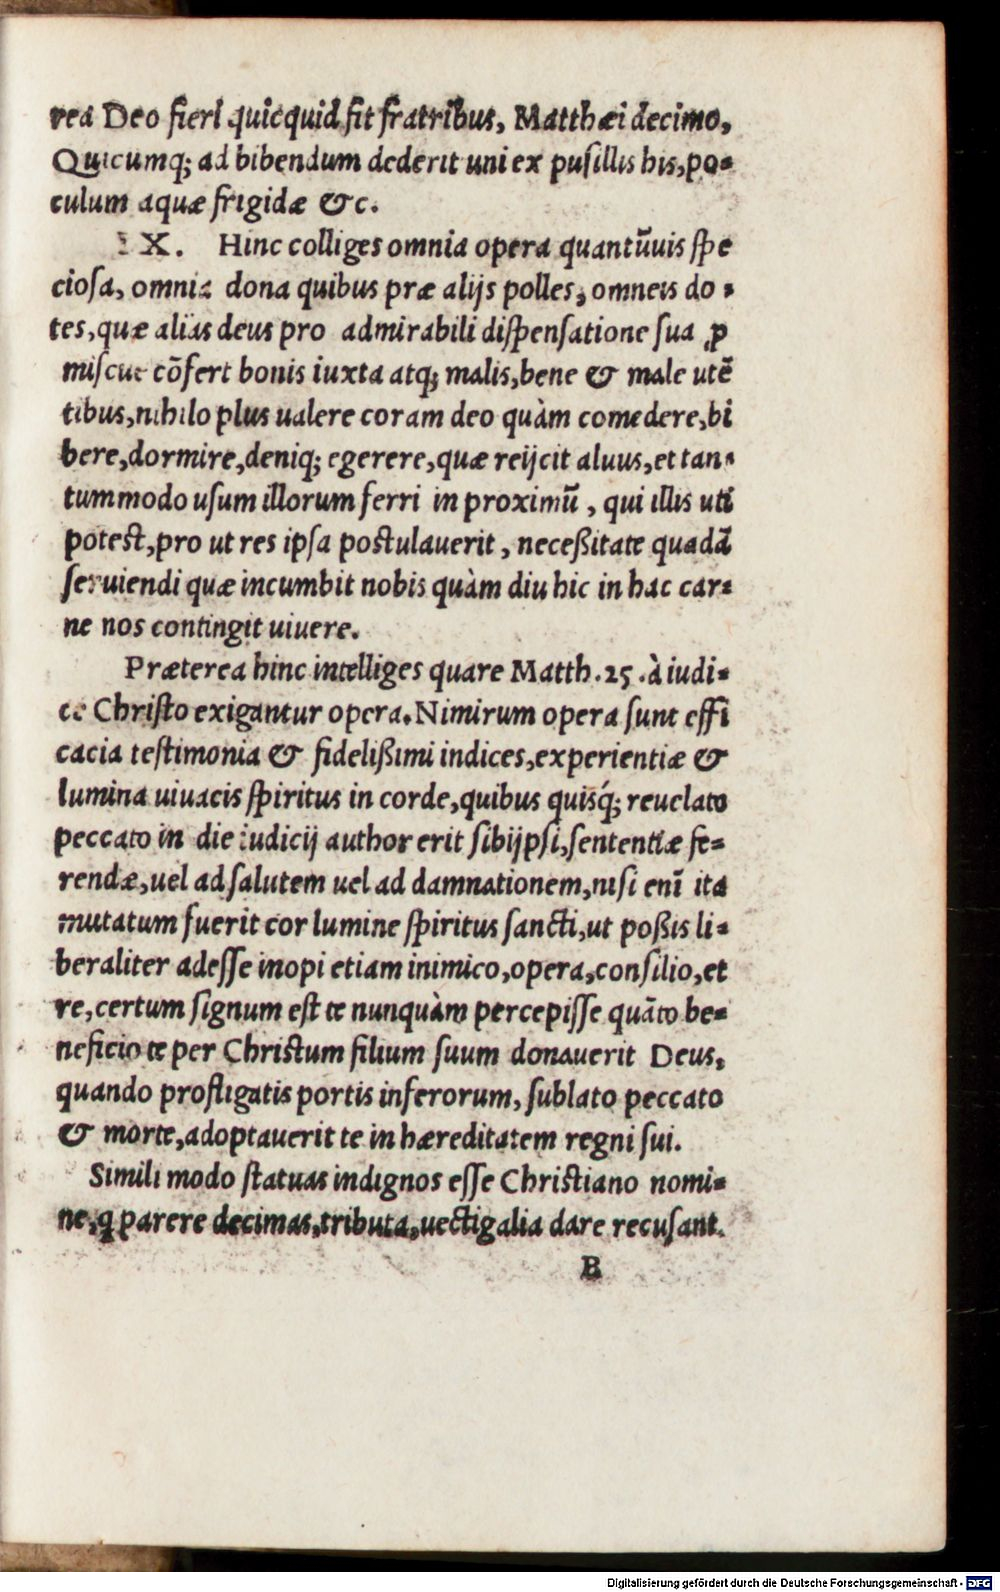 rea Deo fieri quicquid fit fratribus, Matthæi decimo,
Quicumq; ad bibendum dederit uni ex pusillis his, po-
culum aquæ frigidæ &c.
IX. Hinc colliges omnia opera quantūuis spe
ciosa, omnia dona quibus præ alijs polles, omneis do-
tes, quæ alias deus pro admirabili dispensatione sua ꝓ
miscue cōfert bonis iuxta atq; malis, bene & male utē
tibus, nihilo plus ualere coram deo quàm comedere, bi
bere, dormire, deniq; egerere, quæ reijcit aluus, et tan-
tummodo usum illorum ferri in proximū, qui illis uti
potest, pro ut res ipsa postulauerit, neceßitate quadā
seruiendi quæ incumbit nobis quàm diu hic in hac car-
ne nos contingit uiuere.
Præterea hinc intelliges quare Matth. 25. à iudi-
ce Christo exigantur opera. Nimirum opera sunt effi
cacia testimonia & fidelißimi indices, experientiæ &
lumina uiuacis spiritus in corde, quibus quisq́; reuelato
peccato in die iudicij author erit sibijpsi, sententiæ fe-
rendæ, uel ad salutem uel ad damnationem, nisi enī ita
mutatum fuerit cor lumine spiritus sancti, ut poßis li-
beraliter adesse inopi etiam inimico, opera, consilio, et
re, certum signum est te nunquàm percepisse quāto be-
neficio te per Christum filium suum donauerit Deus,
quando profligatis portis inferorum, sublato peccato
& morte, adoptauerit te in hæreditatem regni sui.
Simili modo statuas indignos esse Christiano nomi-
ne, q parere decimas, tributa, uectigalia dare recusant.
B
Digitalisierung gefördert durch die Deutsche Forschungsgemeinschaft - DFG